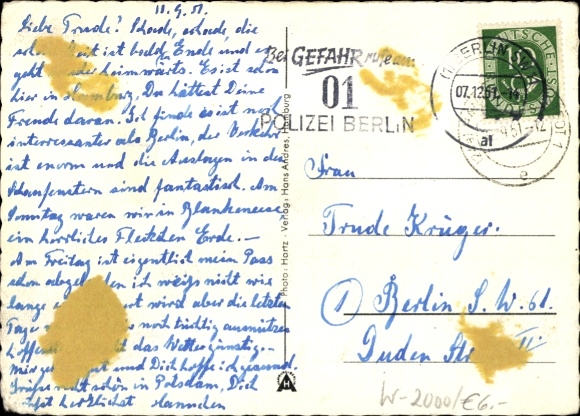 11.9.51.
Liebe Trude! Schade, schade, die
ist bald zu Ende und es
geht wieder heimwärts. Es ist schön
hier in Hamburg. Du hättest Deine
Freude daran. Ich finde es ist noch
interessanter als Berlin, der Verkehr
ist enorm und die Auslagen in den
Schaufenstern sind fantastisch. Am
Sonntag waren wir in Blankenese
ein herrliches Fleckchen Erde. —
Am Freitag ist eigentlich mein Pass
schon abgelaufen ich weiss nicht wie
lange wird aber die letzten
Tage noch tüchtig ausnützen
das Wetter günstig.
Mir geht und Dich hoffe ich gesund.
Grüsse schön in Potsdam, Dich
herzlichst Hannchen
Photo: Hartz · Verlag: Hans Andres, Hamburg
Bei GEFAHR rufe an:
01
POLIZEI BERLIN
BERLIN SW
07.12.51
af
DEUTSCHE POST
e
Frau
Trude Krüger.
① Berlin S.W. 61.
Duden Str. II
W-2000/€6.-